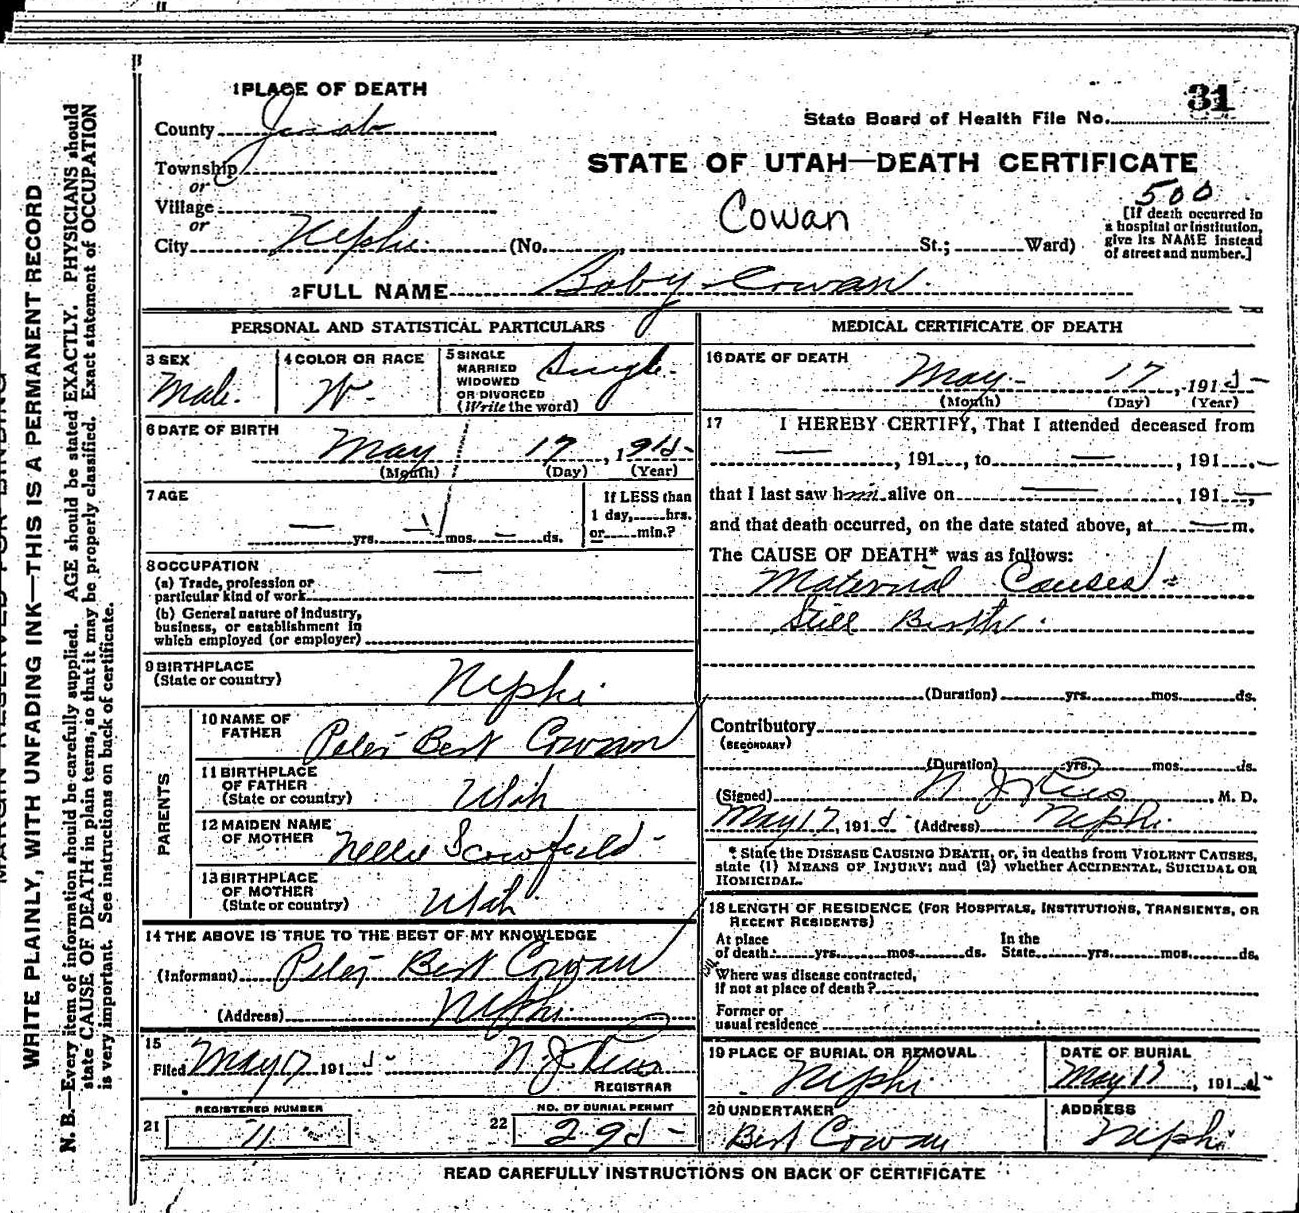 1 PLACE OF DEATH
County Juab
Township
or
Village
or
City Nephi (No. , St.; Ward)
State Board of Health File No. 31
STATE OF UTAH—DEATH CERTIFICATE
Cowan
500
[If death occurred in
a hospital or institution,
give its NAME instead
of street and number.]
2 FULL NAME Baby Cowan
PERSONAL AND STATISTICAL PARTICULARS
3 SEX
Male.
4 COLOR OR RACE
W.
5 SINGLE
MARRIED
WIDOWED
OR DIVORCED
(Write the word)
Single-
6 DATE OF BIRTH
May 17, 191
(Month) (Day) (Year)
7 AGE
yrs. mos. ds.
If LESS than
1 day, hrs.
or min.?
8 OCCUPATION
(a) Trade, profession or
particular kind of work
(b) General nature of industry,
business, or establishment in
which employed (or employer)
9 BIRTHPLACE
(State or country)
Nephi.
PARENTS
10 NAME OF
FATHER
Peter Bert Cowan
11 BIRTHPLACE
OF FATHER
(State or country)
Utah
12 MAIDEN NAME
OF MOTHER
Nellie
13 BIRTHPLACE
OF MOTHER
(State or country)
Utah.
14 THE ABOVE IS TRUE TO THE BEST OF MY KNOWLEDGE
(Informant) Peter Bert Cowan
(Address) Nephi.
15
Filed May 17 191
N. J. Rees
REGISTRAR
REGISTERED NUMBER
21 11
NO. OF BURIAL PERMIT
22 29
MEDICAL CERTIFICATE OF DEATH
16 DATE OF DEATH
May- 17, 191
(Month) (Day) (Year)
17 I HEREBY CERTIFY, That I attended deceased from
— , 191 , to — , 191 ,
that I last saw him alive on — , 191 ,
and that death occurred, on the date stated above, at — m.
The CAUSE OF DEATH* was as follows:
Maternal Causes =
Still Birth.
(Duration) yrs. mos. ds.
Contributory
(SECONDARY)
(Duration) yrs. mos. ds.
(Signed) N. J. Rees, M. D.
May 17, 191 (Address) Nephi.
* State the DISEASE CAUSING DEATH, or, in deaths from VIOLENT CAUSES,
state (1) MEANS OF INJURY; and (2) whether ACCIDENTAL, SUICIDAL OR
HOMICIDAL.
18 LENGTH OF RESIDENCE (FOR HOSPITALS, INSTITUTIONS, TRANSIENTS, OR
RECENT RESIDENTS)
At place
of death yrs. mos. ds.
In the
State yrs. mos. ds.
Where was disease contracted,
If not at place of death?
Former or
usual residence
19 PLACE OF BURIAL OR REMOVAL
Nephi.
DATE OF BURIAL
May 17, 191
20 UNDERTAKER
Bert Cowan
ADDRESS
Nephi
READ CAREFULLY INSTRUCTIONS ON BACK OF CERTIFICATE
MARGIN RESERVED FOR BINDING
WRITE PLAINLY, WITH UNFADING INK—THIS IS A PERMANENT RECORD
N. B.—Every item of information should be carefully supplied. AGE should be stated EXACTLY. PHYSICIANS should
state CAUSE OF DEATH in plain terms, so that it may be properly classified. Exact statement of OCCUPATION
is very important. See instructions on back of certificate.